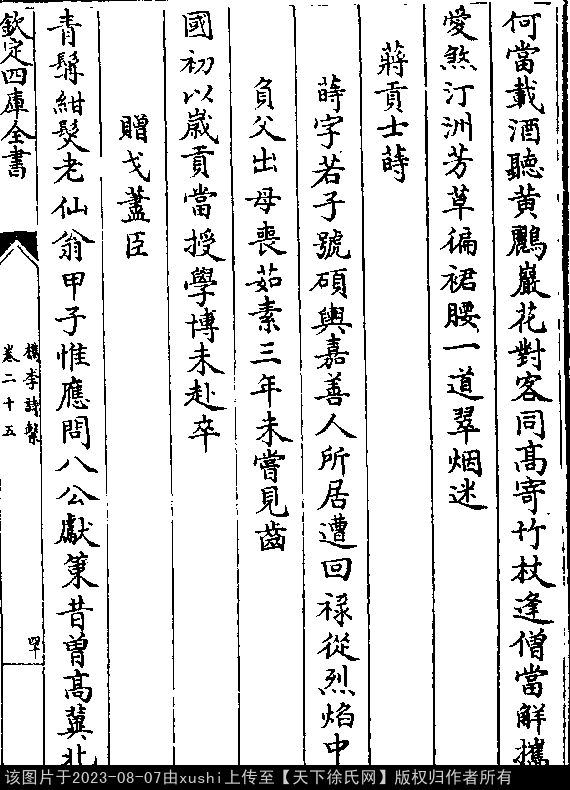 何當載酒聽黄鸝巖花對客同髙寄竹杖逢僧當解攜
愛煞汀洲芳草徧裙腰一道翠烟迷
蔣貢士蒔
蒔字若子號碩輿嘉善人所居遭回祿從烈焰中
負父出母喪茹素三年未嘗見齒
國初以嵗貢當授學博未赴卒
贈戈藎臣
青髯紺髮老仙翁甲子惟應問八公獻䇿昔曾髙冀北
欽定四庫全書
檇李詩繫
卷二十五
四十
该图片于2023-08-07由xushi上传至【天下徐氏网】版权归作者所有